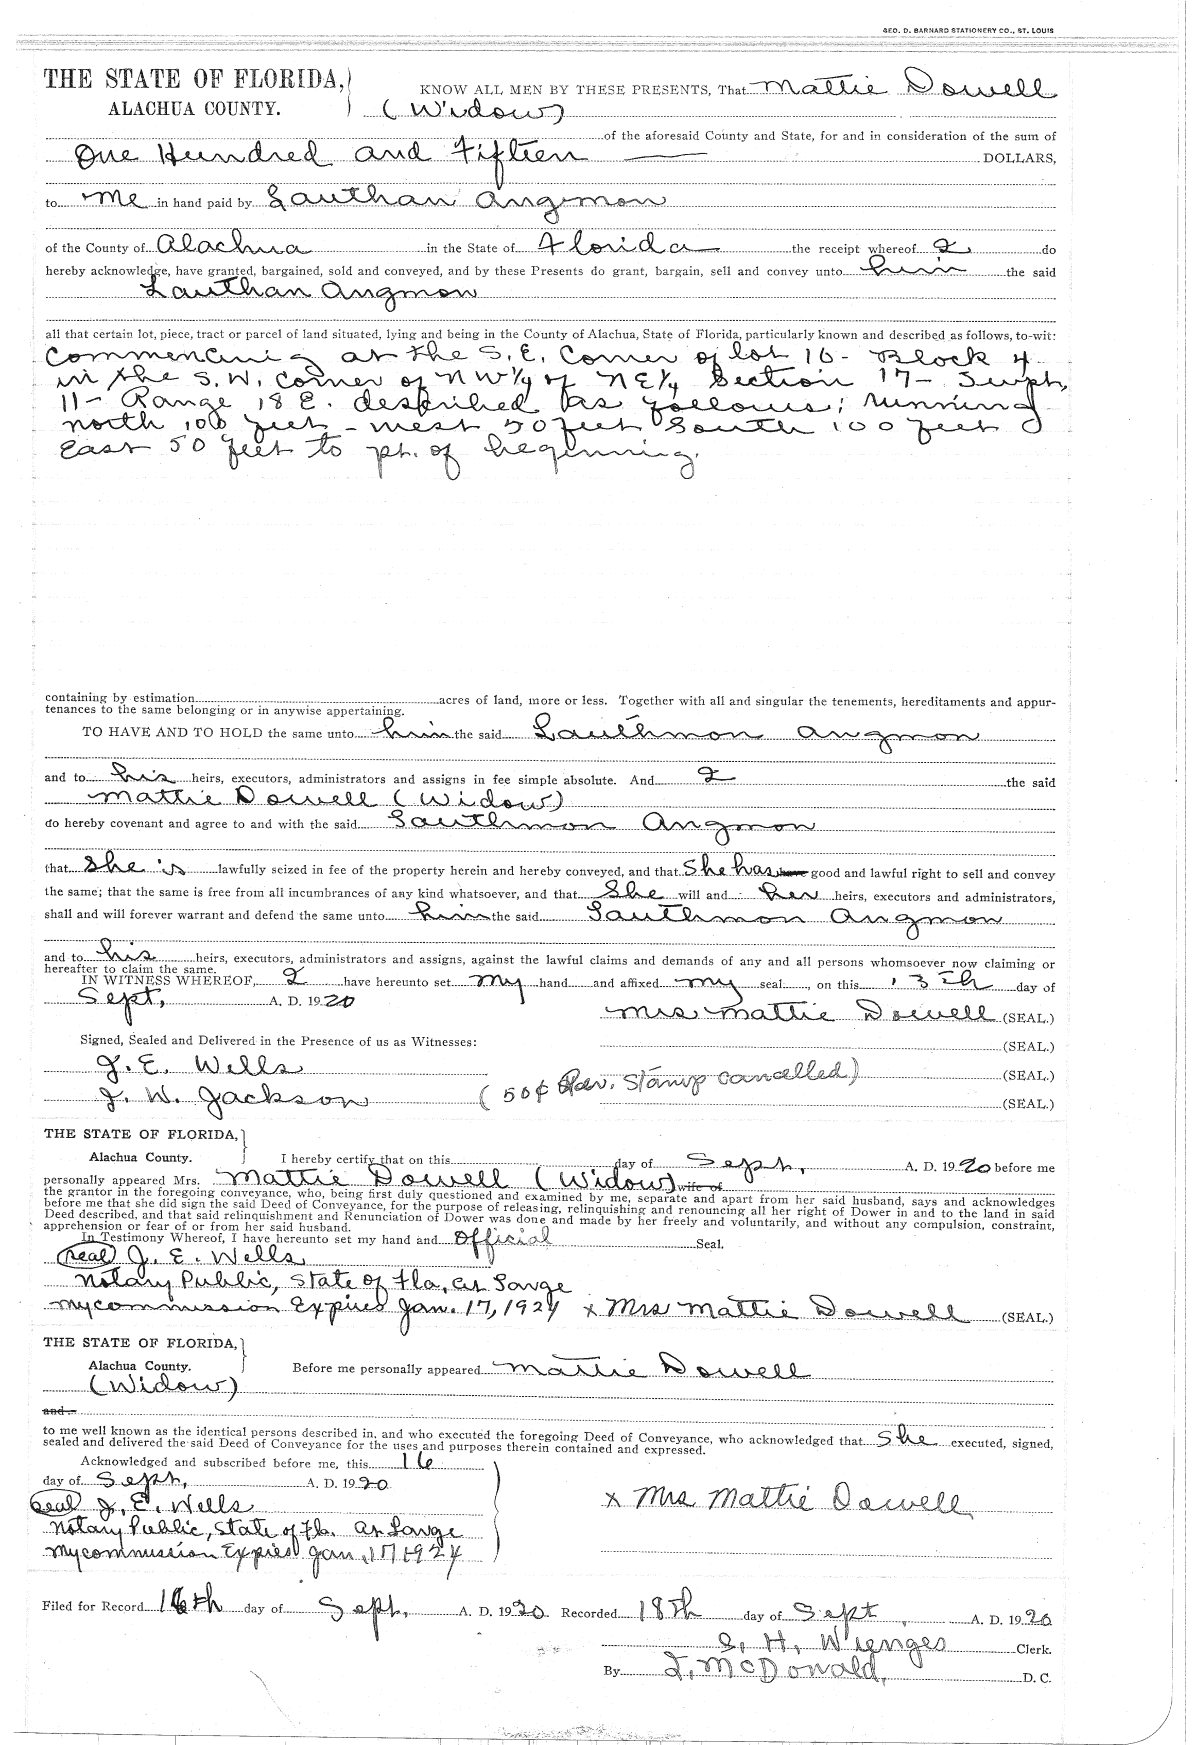 GEO. D. BARNARD STATIONERY CO., ST. LOUIS
THE STATE OF FLORIDA, KNOW ALL MEN BY THESE PRESENTS, That Mattie Dowell
ALACHUA COUNTY. (Widow)
of the aforesaid County and State, for and in consideration of the sum of
One Hundred and Fifteen DOLLARS,
to me in hand paid by Lauthan Angmon
of the County of Alachua in the State of Florida the receipt whereof I do
hereby acknowledge, have granted, bargained, sold and conveyed, and by these Presents do grant, bargain, sell and convey unto him the said
Lauthan Angmon
all that certain lot, piece, tract or parcel of land situated, lying and being in the County of Alachua, State of Florida, particularly known and described as follows, to-wit:
Commencing at the S.E. Corner of lot 16 - Block 4
in the S.W. corner of NW¼ of NE¼ Section 17 -
11 - Range 18 E. described as follows; running
north 100 feet - west 50 feet South 100 feet &
East 50 feet to pt. of beginning.
containing by estimation acres of land, more or less. Together with all and singular the tenements, hereditaments and appur-
tenances to the same belonging or in anywise appertaining.
TO HAVE AND TO HOLD the same unto him the said Lauthmon Angmon
and to his heirs, executors, administrators and assigns in fee simple absolute. And I the said
Mattie Dowell (Widow)
do hereby covenant and agree to and with the said Lauthmon Angmon
that she is lawfully seized in fee of the property herein and hereby conveyed, and that she has have good and lawful right to sell and convey
the same; that the same is free from all incumbrances of any kind whatsoever, and that She will and her heirs, executors and administrators,
shall and will forever warrant and defend the same unto him the said Lauthmon Angmon
and to his heirs, executors, administrators and assigns, against the lawful claims and demands of any and all persons whomsoever now claiming or
hereafter to claim the same.
IN WITNESS WHEREOF, I have hereunto set my hand and affixed my seal, on this 13th day of
Sept, A. D. 1920
Mrs Mattie Dowell (SEAL.)
Signed, Sealed and Delivered in the Presence of us as Witnesses: (SEAL.)
J. E. Wells (SEAL.)
J. W. Jackson (50¢ Rev. Stamp cancelled) (SEAL.)
THE STATE OF FLORIDA,
Alachua County. I hereby certify that on this day of Sept, A. D. 1920 before me
personally appeared Mrs. Mattie Dowell (Widow) wife of
the grantor in the foregoing conveyance, who, being first duly questioned and examined by me, separate and apart from her said husband, says and acknowledges
before me that she did sign the said Deed of Conveyance, for the purpose of releasing, relinquishing and renouncing all her right of Dower in and to the land in said
Deed described, and that said relinquishment and Renunciation of Dower was done and made by her freely and voluntarily, and without any compulsion, constraint,
apprehension or fear of or from her said husband.
In Testimony Whereof, I have hereunto set my hand and Official Seal.
(seal) J. E. Wells
Notary Public, State of Fla, at Large
My commission Expires Jan. 17, 1924 x Mrs Mattie Dowell (SEAL.)
THE STATE OF FLORIDA,
Alachua County. Before me personally appeared Mattie Dowell
(Widow)
and
to me well known as the identical persons described in, and who executed the foregoing Deed of Conveyance, who acknowledged that She executed, signed,
sealed and delivered the said Deed of Conveyance for the uses and purposes therein contained and expressed.
Acknowledged and subscribed before me, this 16
day of Sept, A. D. 1920
(Seal) J. E. Wells x Mrs Mattie Dowell
Notary Public, State of Fla. at Large
My commission Expires Jan, 17 1924
Filed for Record 16th day of Sept, A. D. 1920 Recorded 18th day of Sept, A. D. 1920
S. H. Wienges Clerk.
By McDonald, D. C.